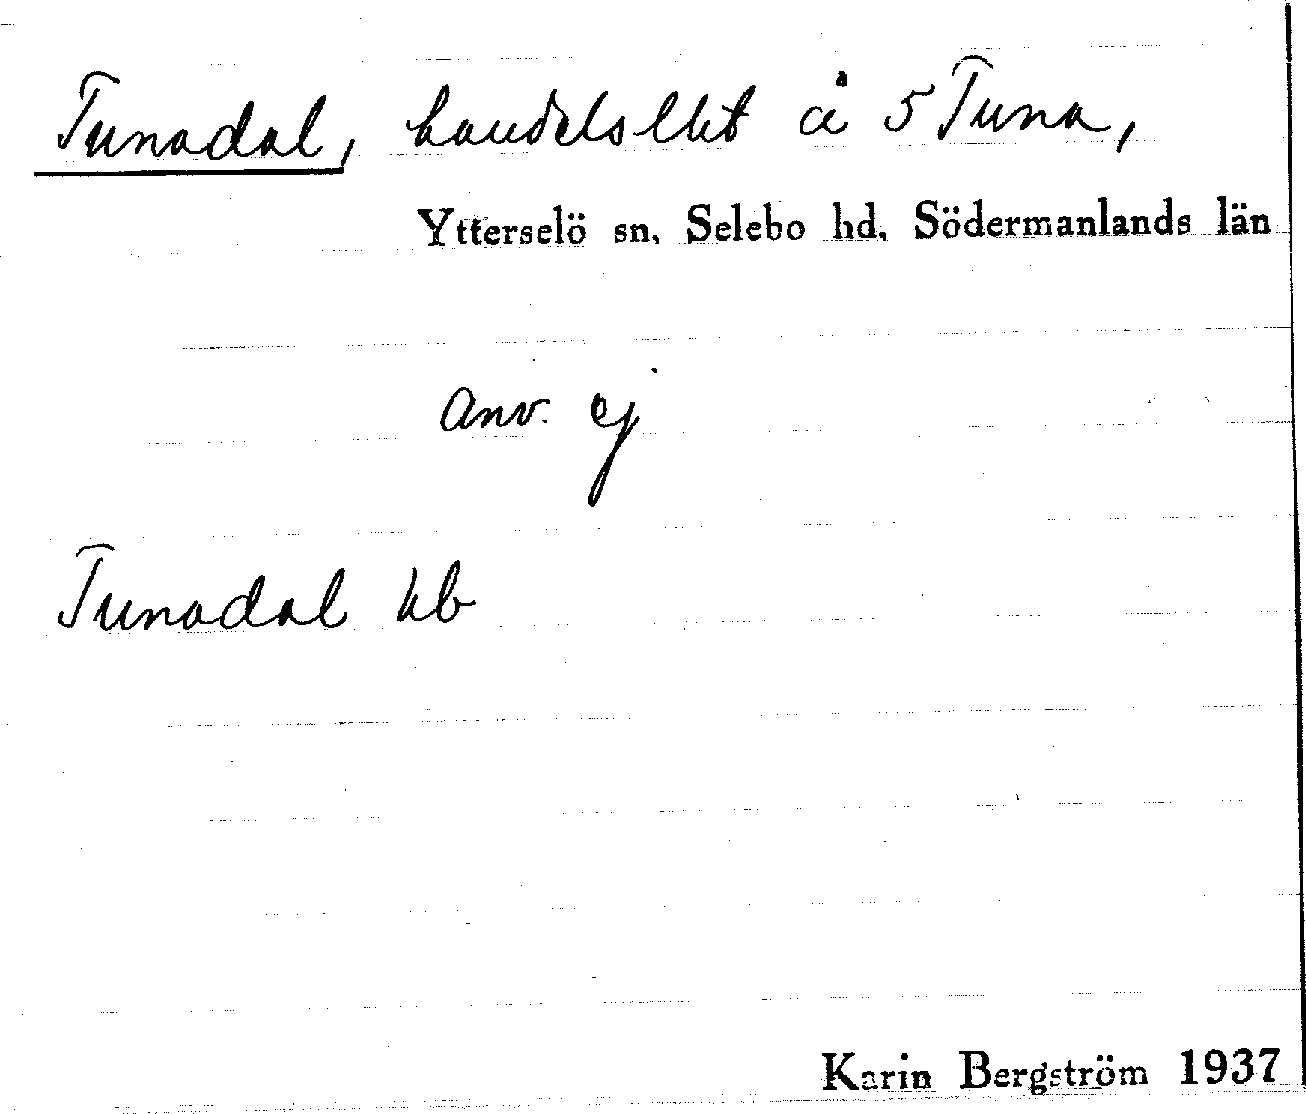 Tunadal, handelslht å 5 Tuna,
Ytterselö sn, Selebo hd, Södermanlands län
Anv. ej
Tunadal kb
Karin Bergström 1937